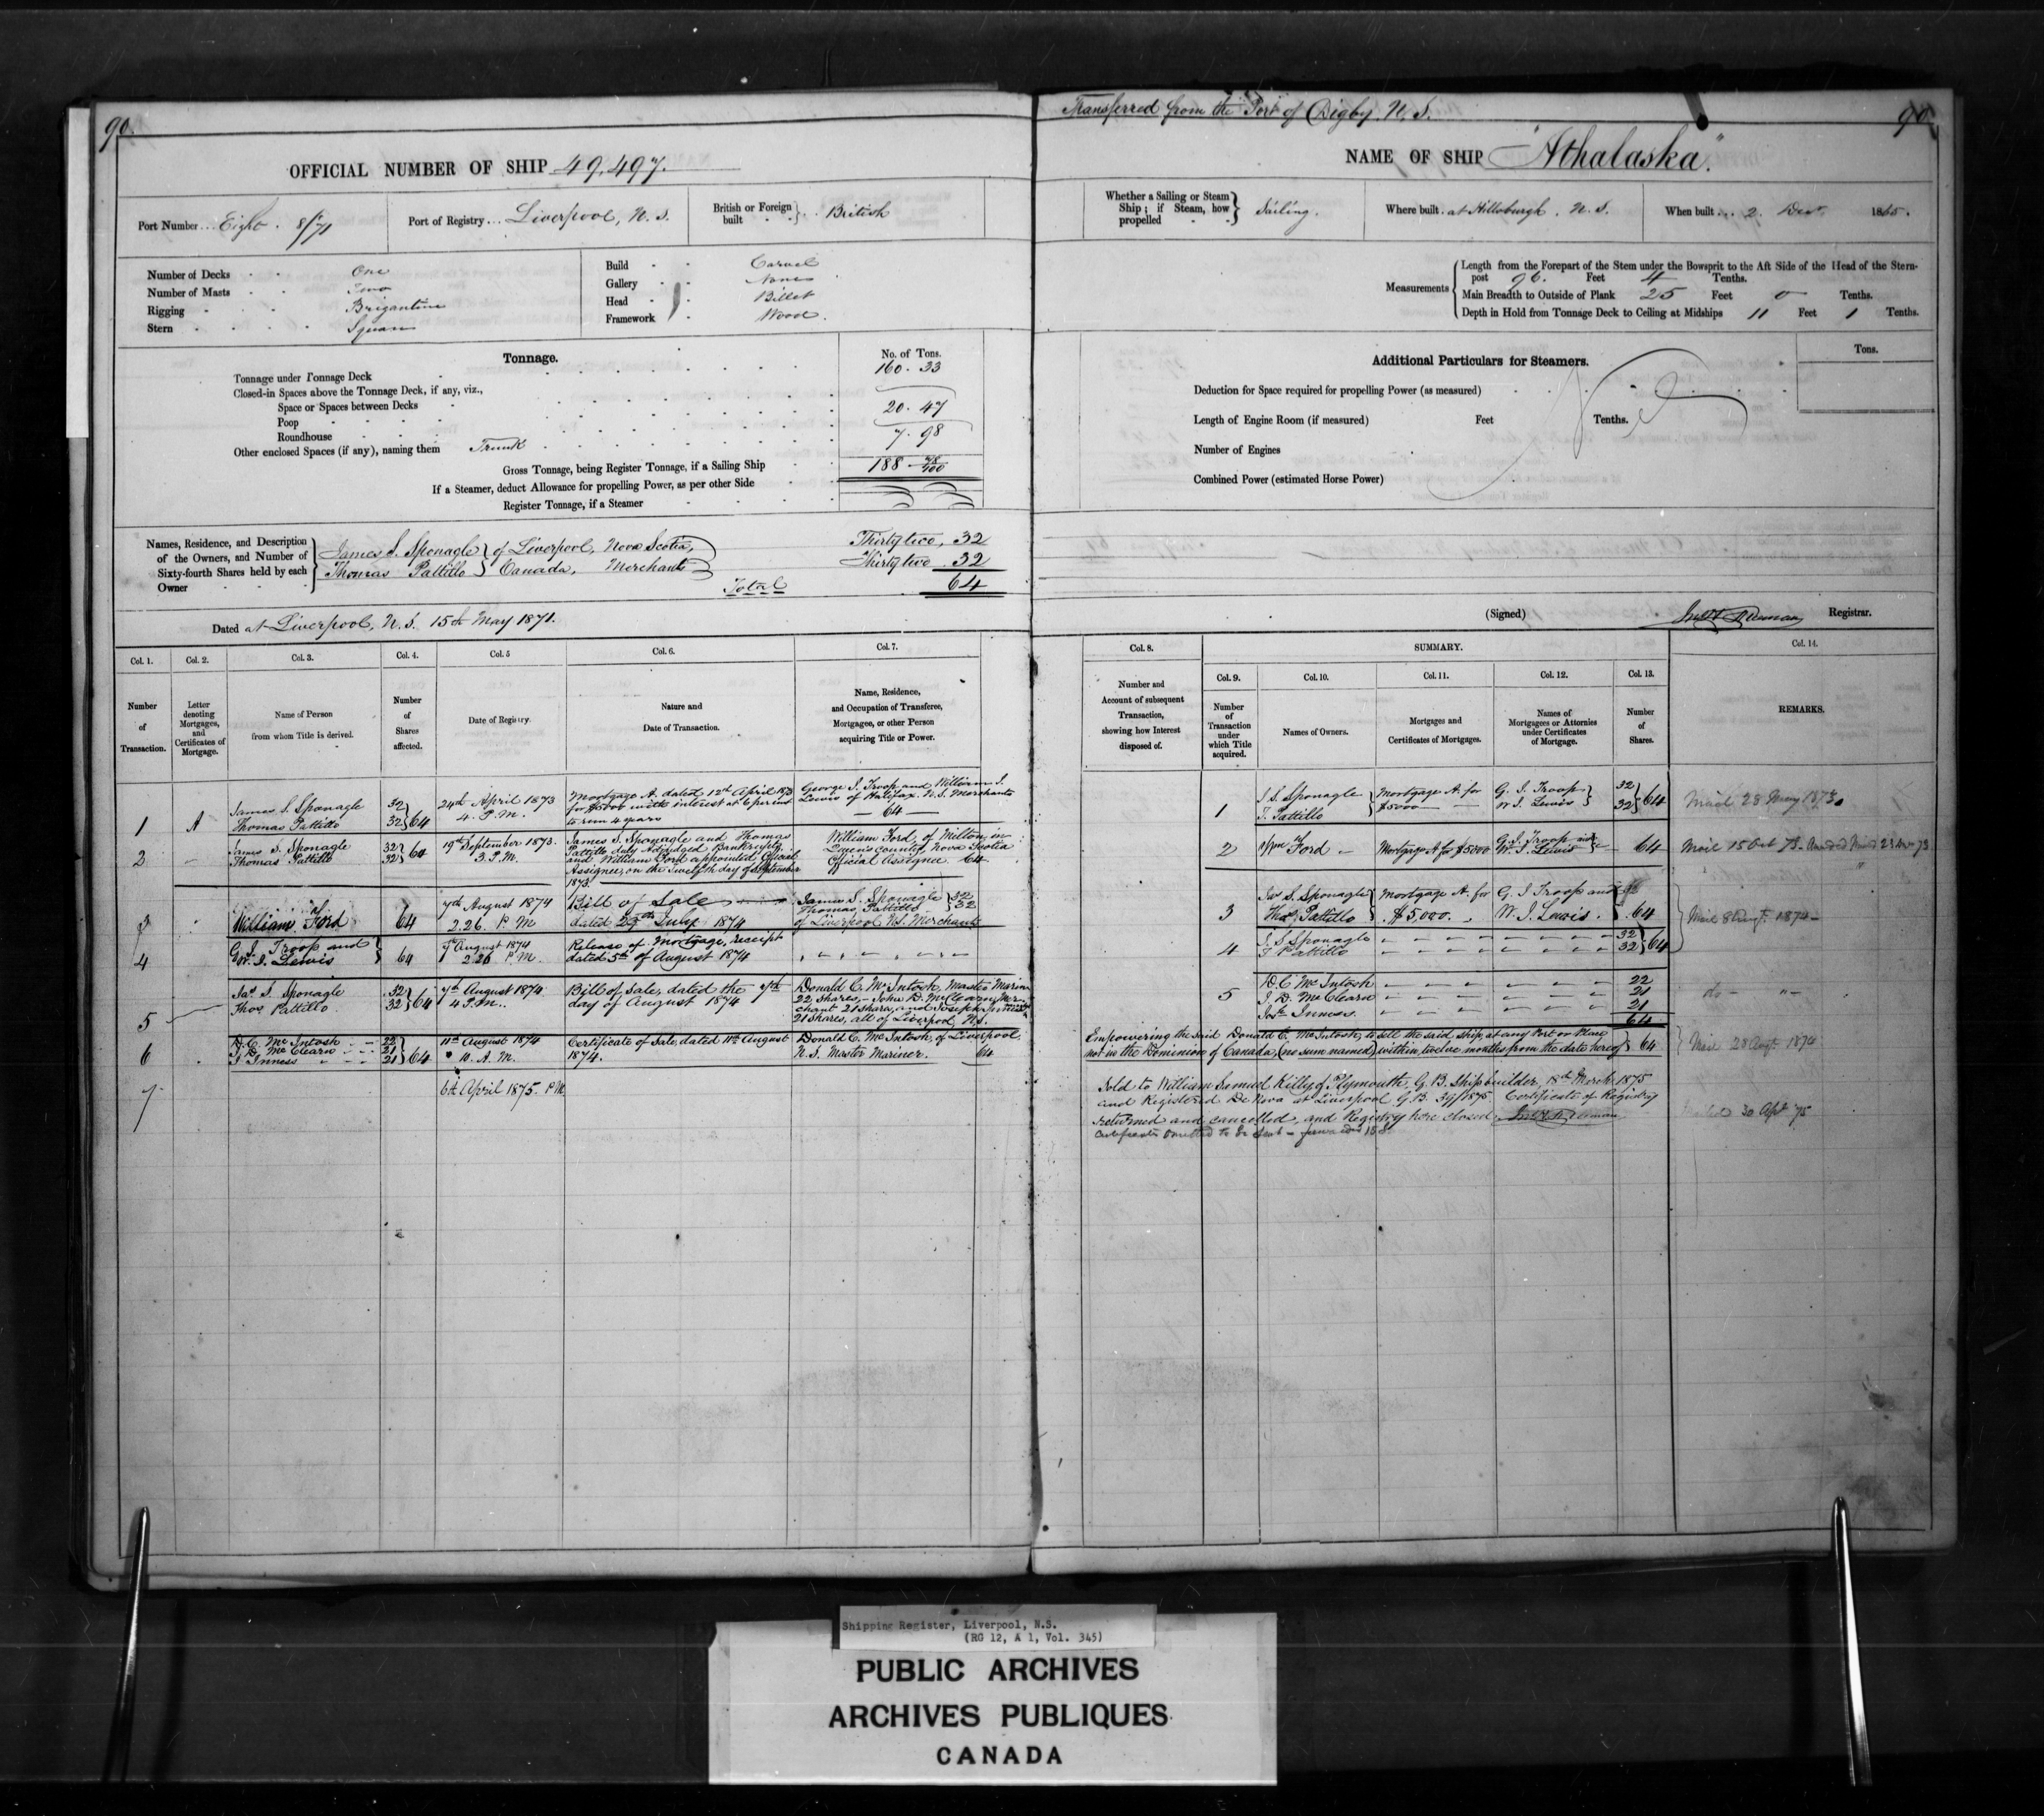 90.
OFFICIAL NUMBER OF SHIP 49,497.
Port Number... Eight. 8/71
Port of Registry... Liverpool, N.S.
British or Foreign built } British
Number of Decks One
Number of Masts Two
Rigging Brigantine
Stern Square
Build Carvel
Gallery None
Head Billet
Framework Wood.
Tonnage.
No. of Tons.
Tonnage under Tonnage Deck 160.33
Closed-in Spaces above the Tonnage Deck, if any, viz.,
Space or Spaces between Decks
Poop 20.47
Roundhouse
Other enclosed Spaces (if any), naming them Trunk 7.98
Gross Tonnage, being Register Tonnage, if a Sailing Ship 188 78/100
If a Steamer, deduct Allowance for propelling Power, as per other Side
Register Tonnage, if a Steamer
Names, Residence, and Description of the Owners, and Number of Sixty-fourth Shares held by each Owner
James S. Sponagle } of Liverpool, Nova Scotia, Thirty two, 32
Thomas Pattillo } Canada, Merchants Thirty two. 32
Total 64
Dated at Liverpool, N.S. 15th May 1871.
Col. 1. Col. 2. Col. 3. Col. 4. Col. 5 Col. 6. Col. 7.
Number of Transaction.
Letter denoting Mortgages, and Certificates of Mortgage.
Name of Person from whom Title is derived.
Number of Shares affected.
Date of Registry.
Nature and Date of Transaction.
Name, Residence, and Occupation of Transferee, Mortgagee, or other Person acquiring Title or Power.
1 A James S. Sponagle Thomas Pattillo 32 32 } 64 24th April 1873 4. P.M. Mortgage A. dated 12th April 1873 for $5000 with interest at 6 per cent to run 4 years George S. Troop and William S. Lewis of Halifax. N.S. Merchants — 64 —
2 James S. Sponagle Thomas Pattillo 32 32 } 64 19th September 1873. 3. P.M. James S. Sponagle and Thomas Pattillo duly Adjudged Bankrupts, and William Ford appointed Official Assignee, on the Twelfth day of September 1873. William Ford, of Milton, in Queens County, Nova Scotia Official Assignee 64.
3 William Ford 64 7th August 1874 2.26. P.M Bill of Sale dated 23rd July 1874 James S. Sponagle Thomas Pattillo } 32 32 of Liverpool N.S. Merchants
4 G. S. Troop and W. S. Lewis } 64 7th August 1874 2.26 P.M. Release of Mortgage, receipt dated 5th of August 1874
5 Jas. S. Sponagle Thos. Pattillo. 32 32 } 64 7th August 1874. 4 P.M.. Bill of Sale, dated the 7th day of August 1874 Donald C. McIntosh, Master Mariner 22 Shares, — John D. McClearn, Merchant 21 Shares, and Joseph Inness 21 Shares, all of Liverpool, N.S.
6 D. C. McIntosh 22 J. D. McClearn 21 J. Inness 21 } 64 11th August 1874 10. A.M. Certificate of Sale, dated 11th August 1874. Donald C. McIntosh, of Liverpool, N.S. Master Mariner. 64
7 6th April 1875. P.M.
Transferred from the Port of Digby, N.S.
90
NAME OF SHIP "Athalaska".
Whether a Sailing or Steam Ship; if Steam, how propelled } Sailing.
Where built. at Hillsburgh, N.S.
When built... 2. Decr 1865.
Measurements
Length from the Forepart of the Stem under the Bowsprit to the Aft Side of the Head of the Stern-
post 96. Feet 4 Tenths.
Main Breadth to Outside of Plank 25 Feet 0 Tenths.
Depth in Hold from Tonnage Deck to Ceiling at Midships 11 Feet 1 Tenths.
Additional Particulars for Steamers.
Tons.
Deduction for Space required for propelling Power (as measured)
Length of Engine Room (if measured) Feet Tenths.
Number of Engines
Combined Power (estimated Horse Power)
(Signed) Registrar.
Col. 8. SUMMARY. Col. 14.
Col. 9. Col. 10. Col. 11. Col. 12. Col. 13.
Number and Account of subsequent Transaction, showing how Interest disposed of.
Number of Transaction under which Title acquired.
Names of Owners.
Mortgages and Certificates of Mortgages.
Names of Mortgagees or Attornies under Certificates of Mortgage.
Number of Shares.
REMARKS.
1 J. S. Sponagle T. Pattillo } Mortgage A. for $5000 G. S. Troop W. S. Lewis } 32 32 } 64 Mail 28 May 1873.
2 Wm Ford — Mortgage A for $5000 G. S. Troop and W. S. Lewis 64 Mail 15 Oct 73.
3 Jas S. Sponagle Thos. Pattillo } Mortgage A. for $5,000. G. S. Troop and W. S. Lewis. } 64 Mail 8 Augt 1874 —
4 J. S. Sponagle T. Pattillo 32 32 } 64
5 D. C McIntosh 22
J. D. McClearn 21
Josh. Inness. 21
64
do — " —
Empowering the said Donald C. McIntosh, to sell the said Ship, at any Port or Place
not in the Dominion of Canada, (no sum named) within twelve months from the date hereof } 64 Mail 28 Augt 1874
Sold to William Samuel Kelly of Plymouth, G.B. Shipbuilder, 18th March 1875
and Registered De Novo at Liverpool G.B. 39/1875. Certificate of Registry
returned and cancelled, and Registry here closed.
Certificate omitted to be sent —
30 Apl 75
Shipping Register, Liverpool, N.S.
(RG 12, A 1, Vol. 345)
PUBLIC ARCHIVES
ARCHIVES PUBLIQUES
CANADA